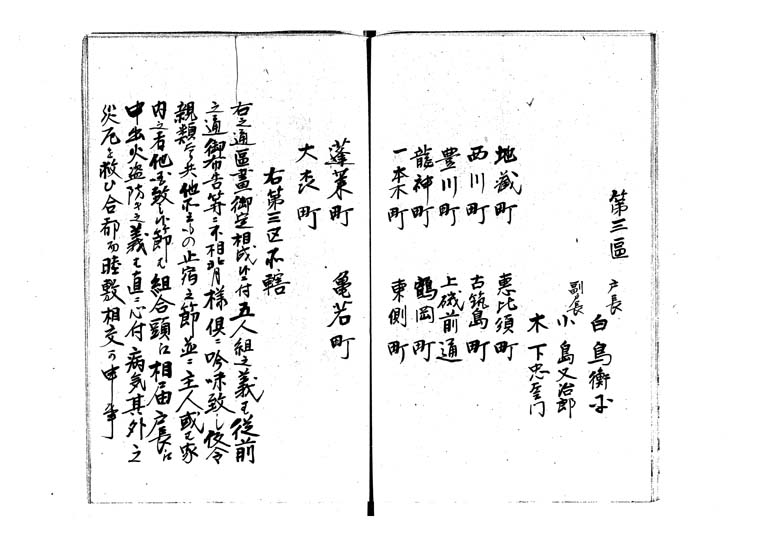 第三區
戸長
白鳥衡平
副長
小島又治郎
木下忠左衛門
地蔵町　恵比須町
西川町　古筑島町
豊川町　上磯前通
龍神町　鶴岡町
一本木町　東側町
蓬莱町　亀若町
大森町
右第三区不轄
右之通區畫御定相成候付五人組之義ハ従前
之通御布告等ニ不相背様倶ニ吟味致し仮令
親類ニ而も其他不之もの止宿之節並ニ主人或ハ家
内之者他出致し候節ハ組合頭江相届戸長江
申出火盗防き之義ハ直ニ心付病気其外之
災厄を救ひ合都而睦敷相交可申事